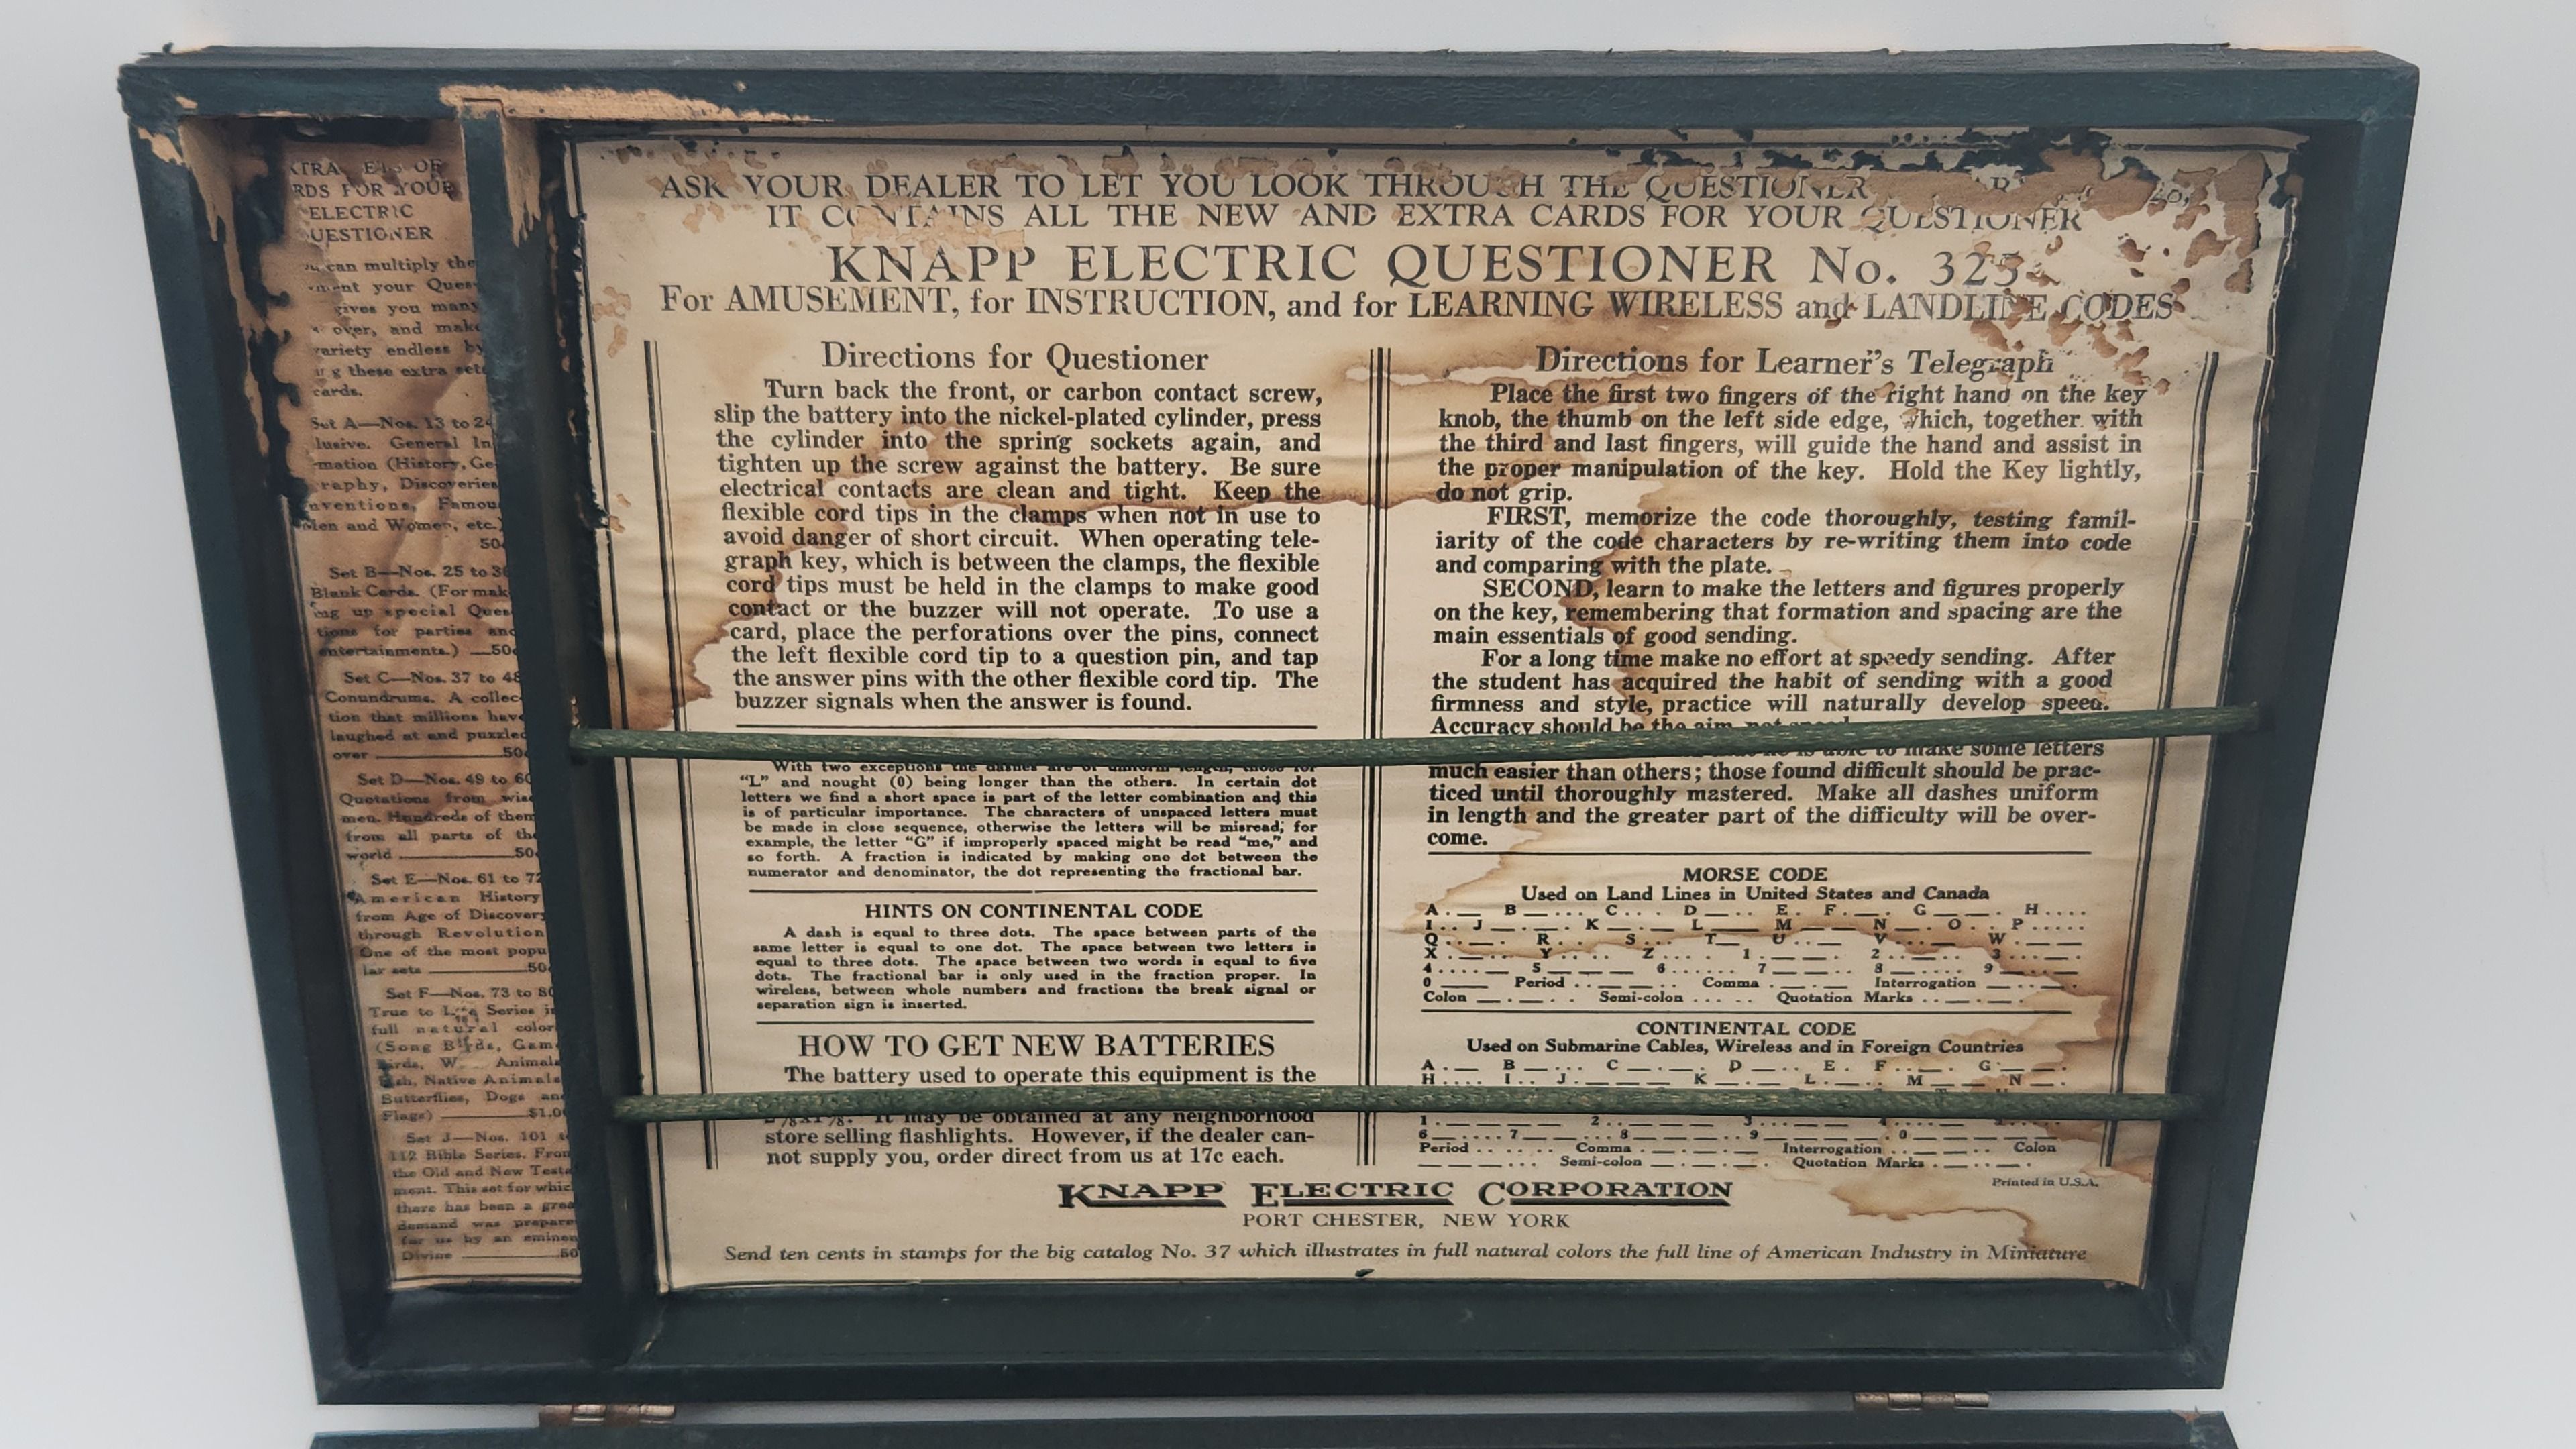 ETS OF
RDS FOR YOUR
ELECTRIC
UESTIONER
can multiply the
ment your Ques-
gives you many
over, and make
variety endless by
these extra sets
cards.
Set A—Nos. 13 to 24
lusive. General In
mation (History, Ge
raphy, Discoveries
nventions, Famou
Men and Women, etc.)
50¢
Set B—Nos. 25 to 36
Blank Cards. (For mak
ing up special Ques
tions for parties and
entertainments.) 50¢
Set C—Nos. 37 to 48
Conundrums. A collec-
tion that millions have
laughed at and puzzled
over 50¢
Set D—Nos. 49 to 60
Quotations from wise
men. Hundreds of them
from all parts of the
world 50¢
Set E—Nos. 61 to 72
American History
from Age of Discovery
through Revolution
One of the most popu
lar sets 50¢
Set F—Nos. 73 to 80
True to Life Series in
full natural color
(Song Birds, Game
Birds, W Animals
Fish, Native Animals
Butterflies, Dogs and
Flags) $1.00
Set J—Nos. 101 t
112 Bible Series. From
the Old and New Testa
ment. This set for which
there has been a grea
demand was prepare
for us by an eminen
Divine 50
ASK YOUR DEALER TO LET YOU LOOK THROUGH THE QUESTIONER
IT CONTAINS ALL THE NEW AND EXTRA CARDS FOR YOUR QUESTIONER
KNAPP ELECTRIC QUESTIONER No. 325
For AMUSEMENT, for INSTRUCTION, and for LEARNING WIRELESS and LANDLINE CODES
Directions for Questioner
Turn back the front, or carbon contact screw,
slip the battery into the nickel-plated cylinder, press
the cylinder into the spring sockets again, and
tighten up the screw against the battery. Be sure
electrical contacts are clean and tight. Keep the
flexible cord tips in the clamps when not in use to
avoid danger of short circuit. When operating tele-
graph key, which is between the clamps, the flexible
cord tips must be held in the clamps to make good
contact or the buzzer will not operate. To use a
card, place the perforations over the pins, connect
the left flexible cord tip to a question pin, and tap
the answer pins with the other flexible cord tip. The
buzzer signals when the answer is found.
With two exceptions the dashes are of uniform length, those for
"L" and nought (0) being longer than the others. In certain dot
letters we find a short space is part of the letter combination and this
is of particular importance. The characters of unspaced letters must
be made in close sequence, otherwise the letters will be misread; for
example, the letter "G" if improperly spaced might be read "me," and
so forth. A fraction is indicated by making one dot between the
numerator and denominator, the dot representing the fractional bar.
HINTS ON CONTINENTAL CODE
A dash is equal to three dots. The space between parts of the
same letter is equal to one dot. The space between two letters is
equal to three dots. The space between two words is equal to five
dots. The fractional bar is only used in the fraction proper. In
wireless, between whole numbers and fractions the break signal or
separation sign is inserted.
HOW TO GET NEW BATTERIES
The battery used to operate this equipment is the
It may be obtained at any neighborhood
store selling flashlights. However, if the dealer can-
not supply you, order direct from us at 17c each.
Directions for Learner's Telegraph
Place the first two fingers of the right hand on the key
knob, the thumb on the left side edge, which, together with
the third and last fingers, will guide the hand and assist in
the proper manipulation of the key. Hold the Key lightly,
do not grip.
FIRST, memorize the code thoroughly, testing famil-
iarity of the code characters by re-writing them into code
and comparing with the plate.
SECOND, learn to make the letters and figures properly
on the key, remembering that formation and spacing are the
main essentials of good sending.
For a long time make no effort at speedy sending. After
the student has acquired the habit of sending with a good
firmness and style, practice will naturally develop speed.
Accuracy should be the aim not speed
is able to make some letters
much easier than others; those found difficult should be prac-
ticed until thoroughly mastered. Make all dashes uniform
in length and the greater part of the difficulty will be over-
come.
MORSE CODE
Used on Land Lines in United States and Canada
A . — B — . . . C . . . D — . . E . F . — . G — — . H . . . .
I . . J — . — . K — . — L — M — — N — . O . . P . . . . .
Q . . — . R . . . S . . . T — U . . — V . . . — W . — —
X . — . . Y . . . . Z . . . . 1 . — — . 2 . . — . . 3 . . . — .
4 . . . . — 5 — — — 6 . . . . . . 7 — — . . 8 — . . . . 9 — . . —
0 — Period . . — — . . Comma . — . — Interrogation — . . — .
Colon Semi-colon Quotation Marks
CONTINENTAL CODE
Used on Submarine Cables, Wireless and in Foreign Countries
A . — B — . . . C — . — . D — . . E . F . . — . G — — .
H . . . . I . . J . — — — K — . — L . — . . M — — N — .
1 . — — — — 2 3 4
6 — . . . . 7 — — . . . 8 — — — . . 9 — — — — . 0 — — — — —
Period . . . . . . Comma . — . — . — Interrogation . . — — . . Colon
— — — . . . Semi-colon — . — . — . Quotation Marks . — . . — .
Printed in U.S.A.
KNAPP ELECTRIC CORPORATION
PORT CHESTER, NEW YORK
Send ten cents in stamps for the big catalog No. 37 which illustrates in full natural colors the full line of American Industry in Miniature